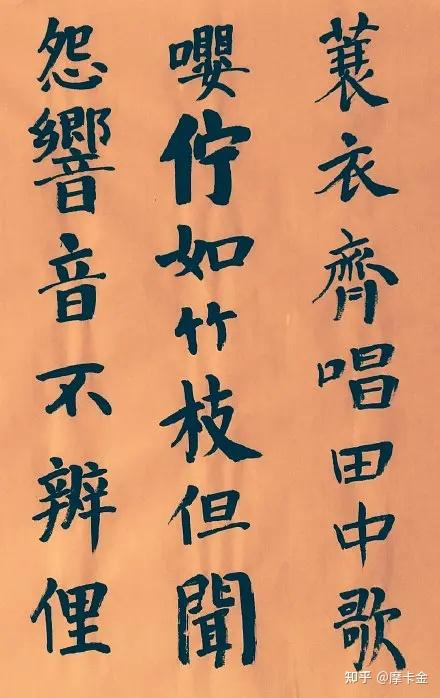 蓑衣齊唱田中歌
嚶佇如竹枝但聞
怨響音不辨俚
知乎 @摩卡金